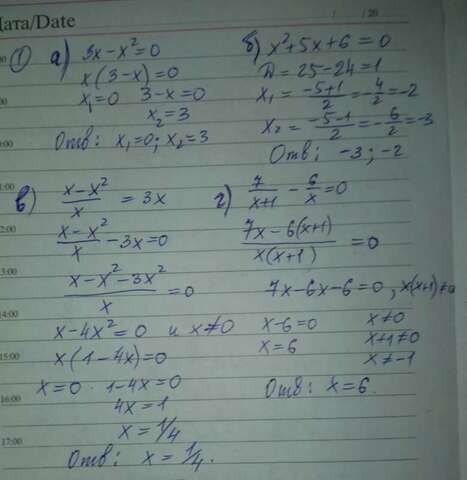 Дата/Date
/ / 20
① а) 3x-x²=0
x(3-x)=0
x₁=0 3-x=0
x₂=3
Отв: x₁=0; x₂=3
б) x²+5x+6=0
D=25-24=1
x₁=(-5+1)/2=-4/2=-2
x₂=(-5-1)/2=-6/2=-3
Отв: -3; -2
в) (x-x²)/x = 3x
(x-x²)/x -3x=0
(x-x²-3x²)/x =0
x-4x²=0 и x≠0
x(1-4x)=0
x=0 · 1-4x=0
4x=1
x=1/4
Отв: x=1/4.
г) 7/(x+1) - 6/x=0
(7x-6(x+1))/(x(x+1)) =0
7x-6x-6=0, x(x+1)≠0
x-6=0 x≠0
x=6 x+1≠0
x≠-1
Отв: x=6.
11:00
12:00
13:00
14:00
15:00
16:00
17:00